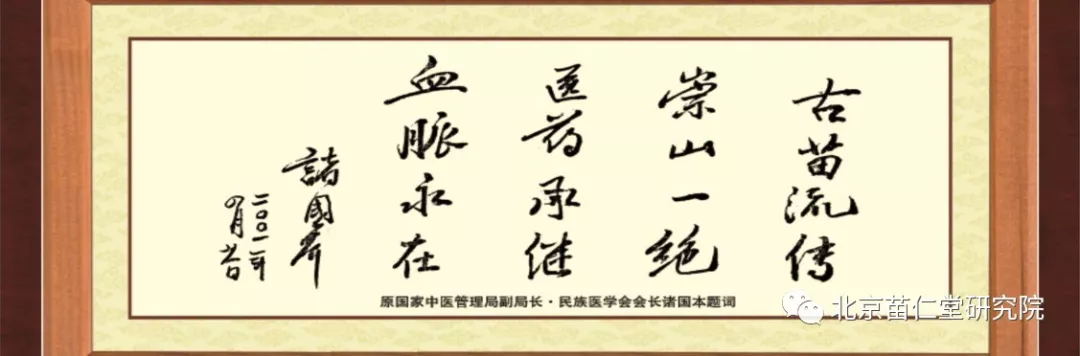 古苗流传
崇山一绝
医药承继
血脉永在
諸國本
四月
原国家中医管理局副局长·民族医学会会长诸国本题词
北京苗仁堂研究院